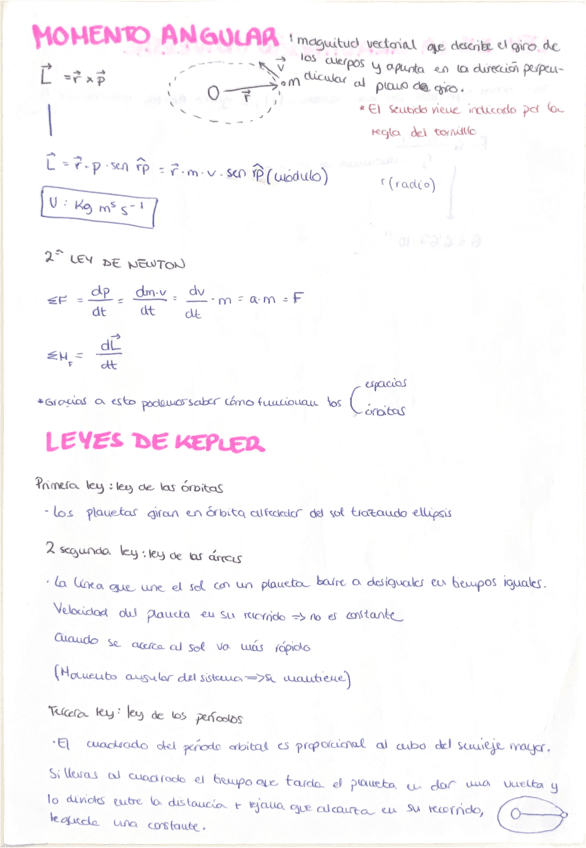 MOMENTO ANGULAR : magnitud vectorial que describe el giro de
los cuerpos y apunta en la dirección perpen-
dicular al plano de giro.
* El sentido viene indicado por la
regla del tornillo
L⃗ = r⃗ x p⃗
O r⃗ v⃗ m
L⃗ = r⃗ · p · sen r̂p = r⃗ · m · v · sen r̂p (módulo)
r (radio)
U : Kg m⁵ s⁻¹
2ª LEY DE NEWTON
ΣF = dp/dt = dm·v/dt = dv/dt · m = a·m = F
ΣM_F = dL⃗/dt
*Gracias a esto podemos saber cómo funcionan los ( espacios
órbitas
LEYES DE KEPLER
Primera ley : ley de las órbitas
- Los planetas giran en órbita alrededor del sol trazando ellipsis
2 segunda ley : ley de las áreas
· La línea que une el sol con un planeta barre a desiguales en tiempos iguales.
Velocidad del planeta en su recorrido => no es constante
Cuando se acerca al sol va más rápido
(Momento angular del sistema => se mantiene)
Tercera ley : ley de los períodos
· El cuadrado del período orbital es proporcional al cubo del semieje mayor.
Si llevas al cuadrado el tiempo que tarda el planeta en dar una vuelta y
lo divides entre la distancia + lejana que alcanza en su recorrido,
te queda una constante.